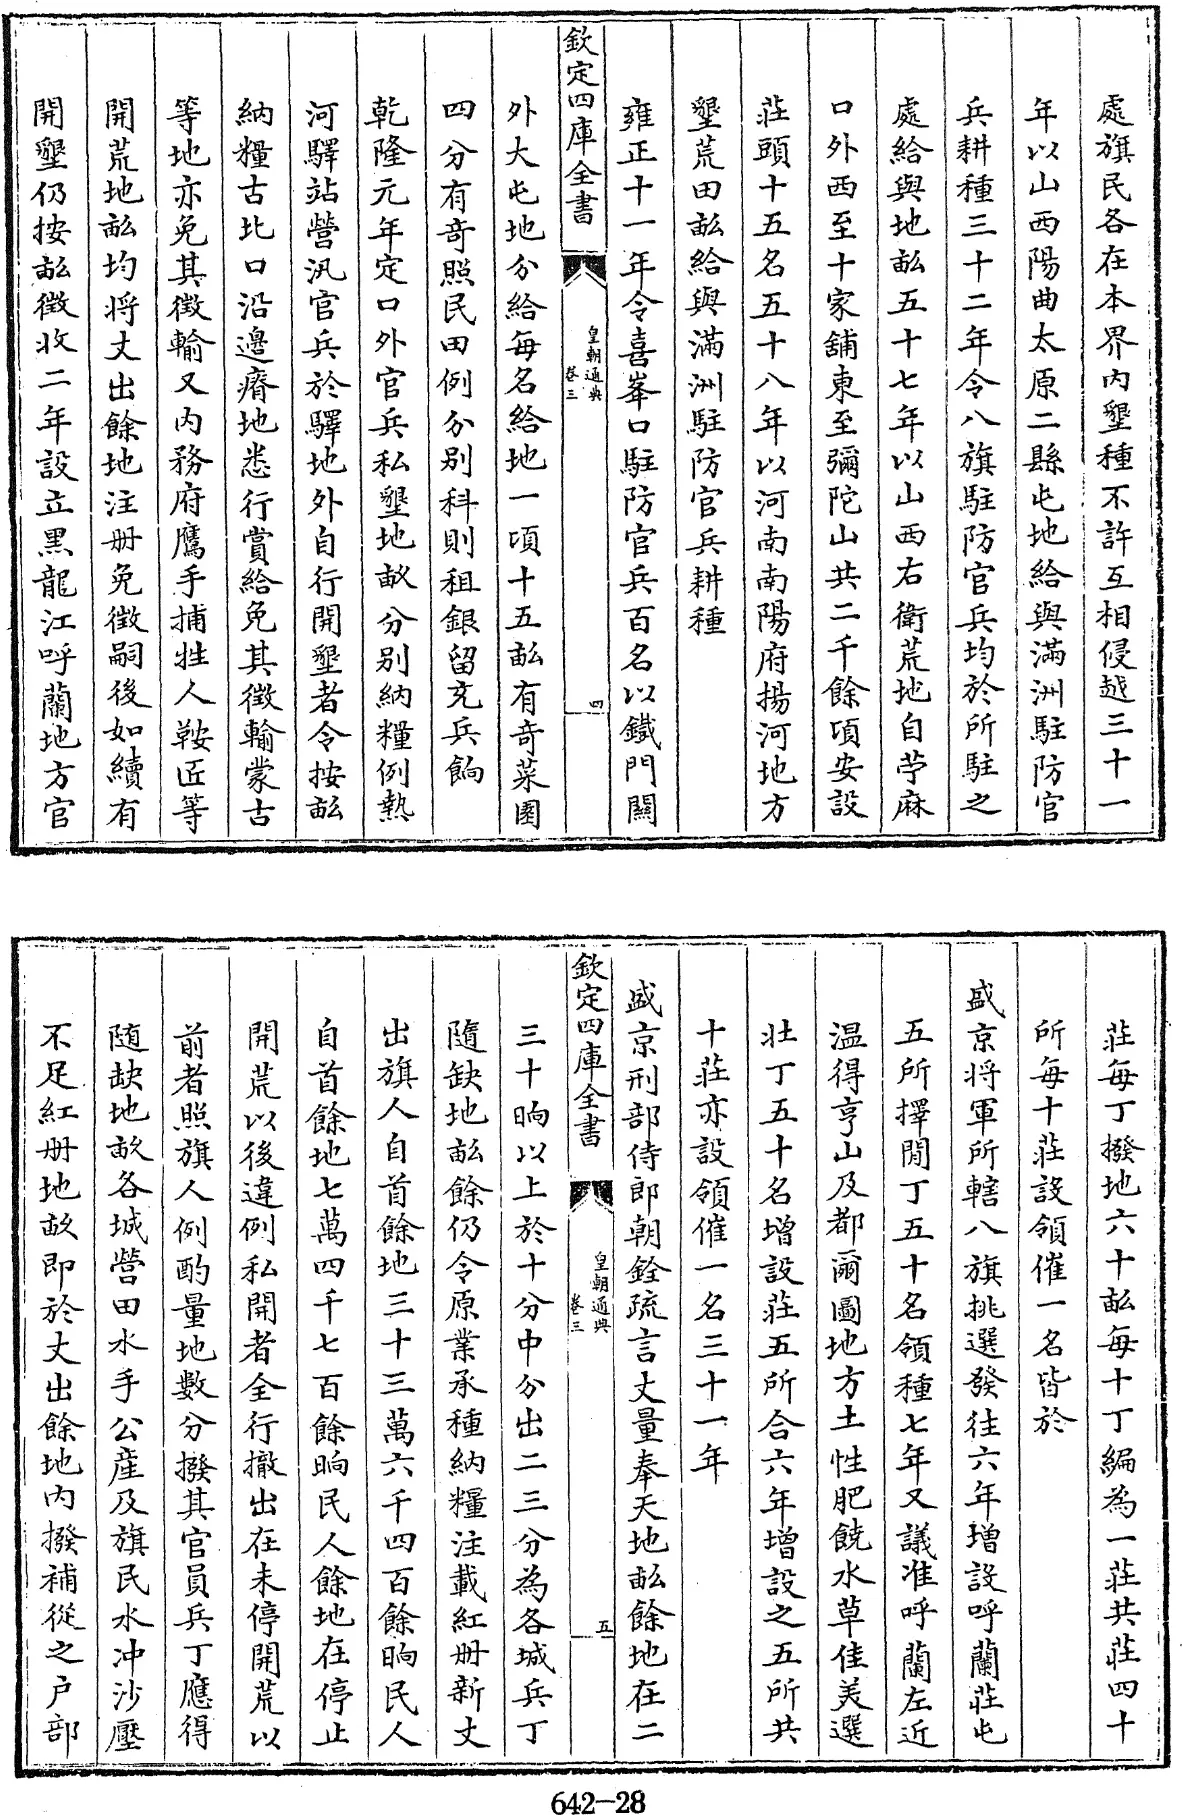 處旗民各在本界内墾種不許互相侵越三十一
年以山西陽曲太原二縣屯地給與滿洲駐防官
兵耕種三十二年令八旗駐防官兵均於所駐之
處給與地畝五十七年以山西右衛荒地自苧麻
口外西至十家鋪東至彌陀山共二千餘頃安設
莊頭十五名五十八年以河南南陽府揚河地方
墾荒田畝給與滿洲駐防官兵耕種
雍正十一年令喜峯口駐防官兵百名以鐵門關
欽定四庫全書
皇朝通典
卷三
四
外大屯地分給每名給地一頃十五畝有奇菜園
四分有奇照民田例分別科則租銀留充兵餉
乾隆元年定口外官兵私墾地畝分別納糧例熱
河驛站營汛官兵於驛地外自行開墾者令按畝
納糧古北口沿邊瘠地悉行賞給免其徵輸蒙古
等地亦免其徵輸又内務府鷹手捕牲人鞍匠等
開荒地畝均將丈出餘地注冊免徵嗣後如續有
開墾仍按畝徵收二年設立黑龍江呼蘭地方官
莊每丁撥地六十畝每十丁編為一莊共莊四十
所每十莊設領催一名皆於
盛京將軍所轄八旗挑選發往六年增設呼蘭莊屯
五所擇閒丁五十名領種七年又議准呼蘭左近
温得亨山及都爾圖地方土性肥饒水草佳美選
壯丁五十名增設莊五所合六年增設之五所共
十莊亦設領催一名三十一年
盛京刑部侍郎朝銓疏言丈量奉天地畝餘地在二
欽定四庫全書
皇朝通典
卷三
五
三十晌以上於十分中分出二三分為各城兵丁
隨缺地畝餘仍令原業承種納糧注載紅冊新丈
出旗人自首餘地三十三萬六千四百餘晌民人
自首餘地七萬四千七百餘晌民人餘地在停止
開荒以後違例私開者全行撤出在未停開荒以
前者照旗人例酌量地數分撥其官員兵丁應得
隨缺地畝各城營田水手公產及旗民水冲沙壓
不足紅冊地畝即於丈出餘地内撥補從之户部
642-28